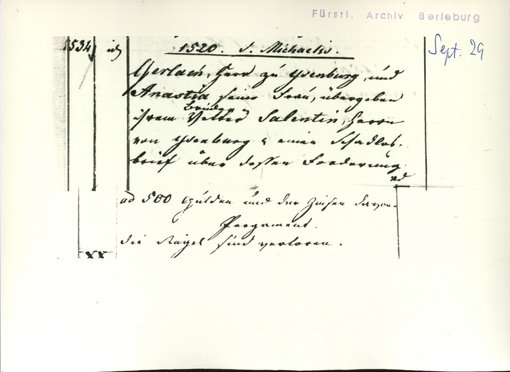 Fürstl. Archiv Berleburg
Sept. 29
1534 id
1520. S. Michaelis.
Gerlach, Herr zu Ysenburg, und
Anastia seine Frau, übergeben
Bruder
ihrem Vetter Salentin, Herrn
von Ysenburg einen Schadlos-
brief über dessen Forderung
ad 500 Gülden und der Zinsen davon.
Pergament.
die Siegel sind verloren.
XX